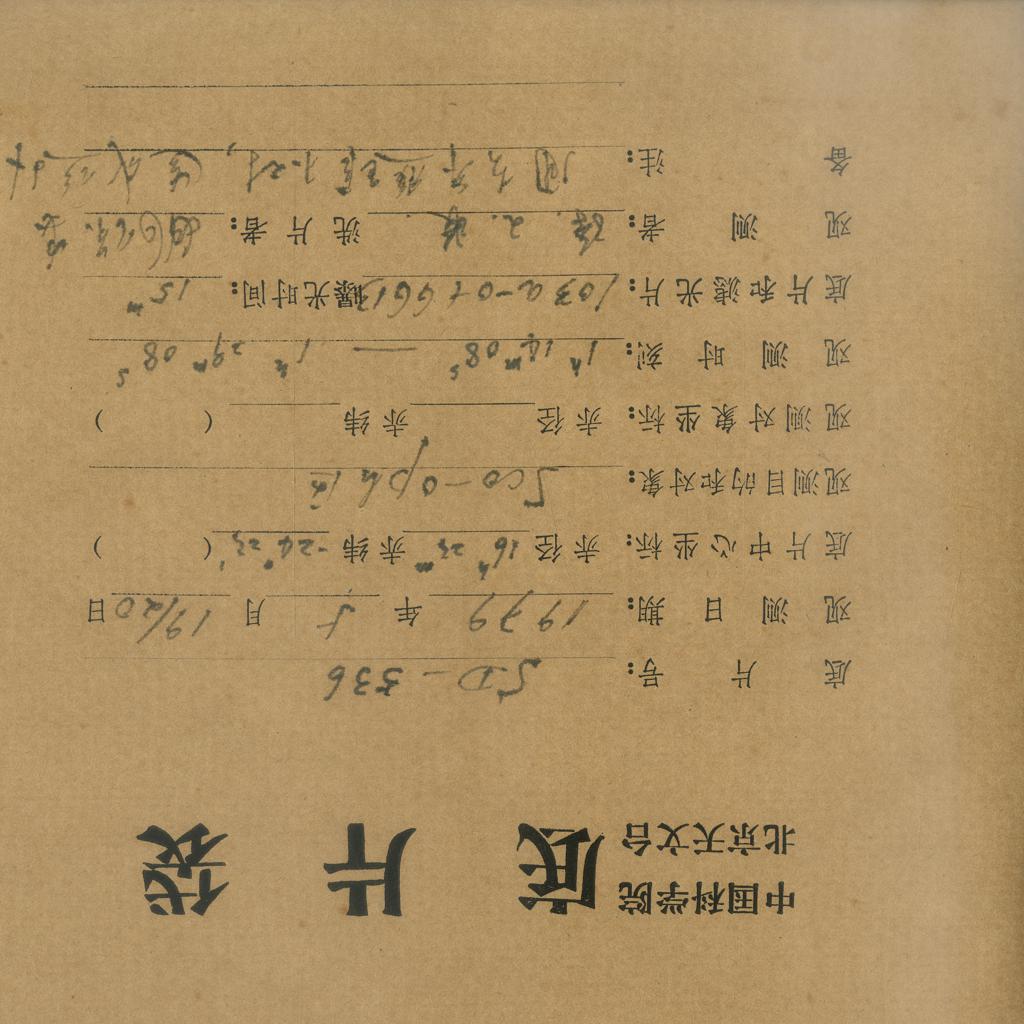 中国科学院
北京天文台
底 片 袋
底片号: SD-336
观测日期: 1979年5月19/20日
底片中心坐标: 赤经 16ʰ23ᵐ 赤纬 -24°23′ ( )
观测目的和对象: Sco-Oph
观测对象坐标: 赤径 赤纬 ( )
观测时刻: 1ʰ14ᵐ08ˢ — 1ʰ29ᵐ08ˢ
底片和滤光片: 103a-O+GG13 曝光时间: 15ᵐ
观测者: 洗片者:
备注: